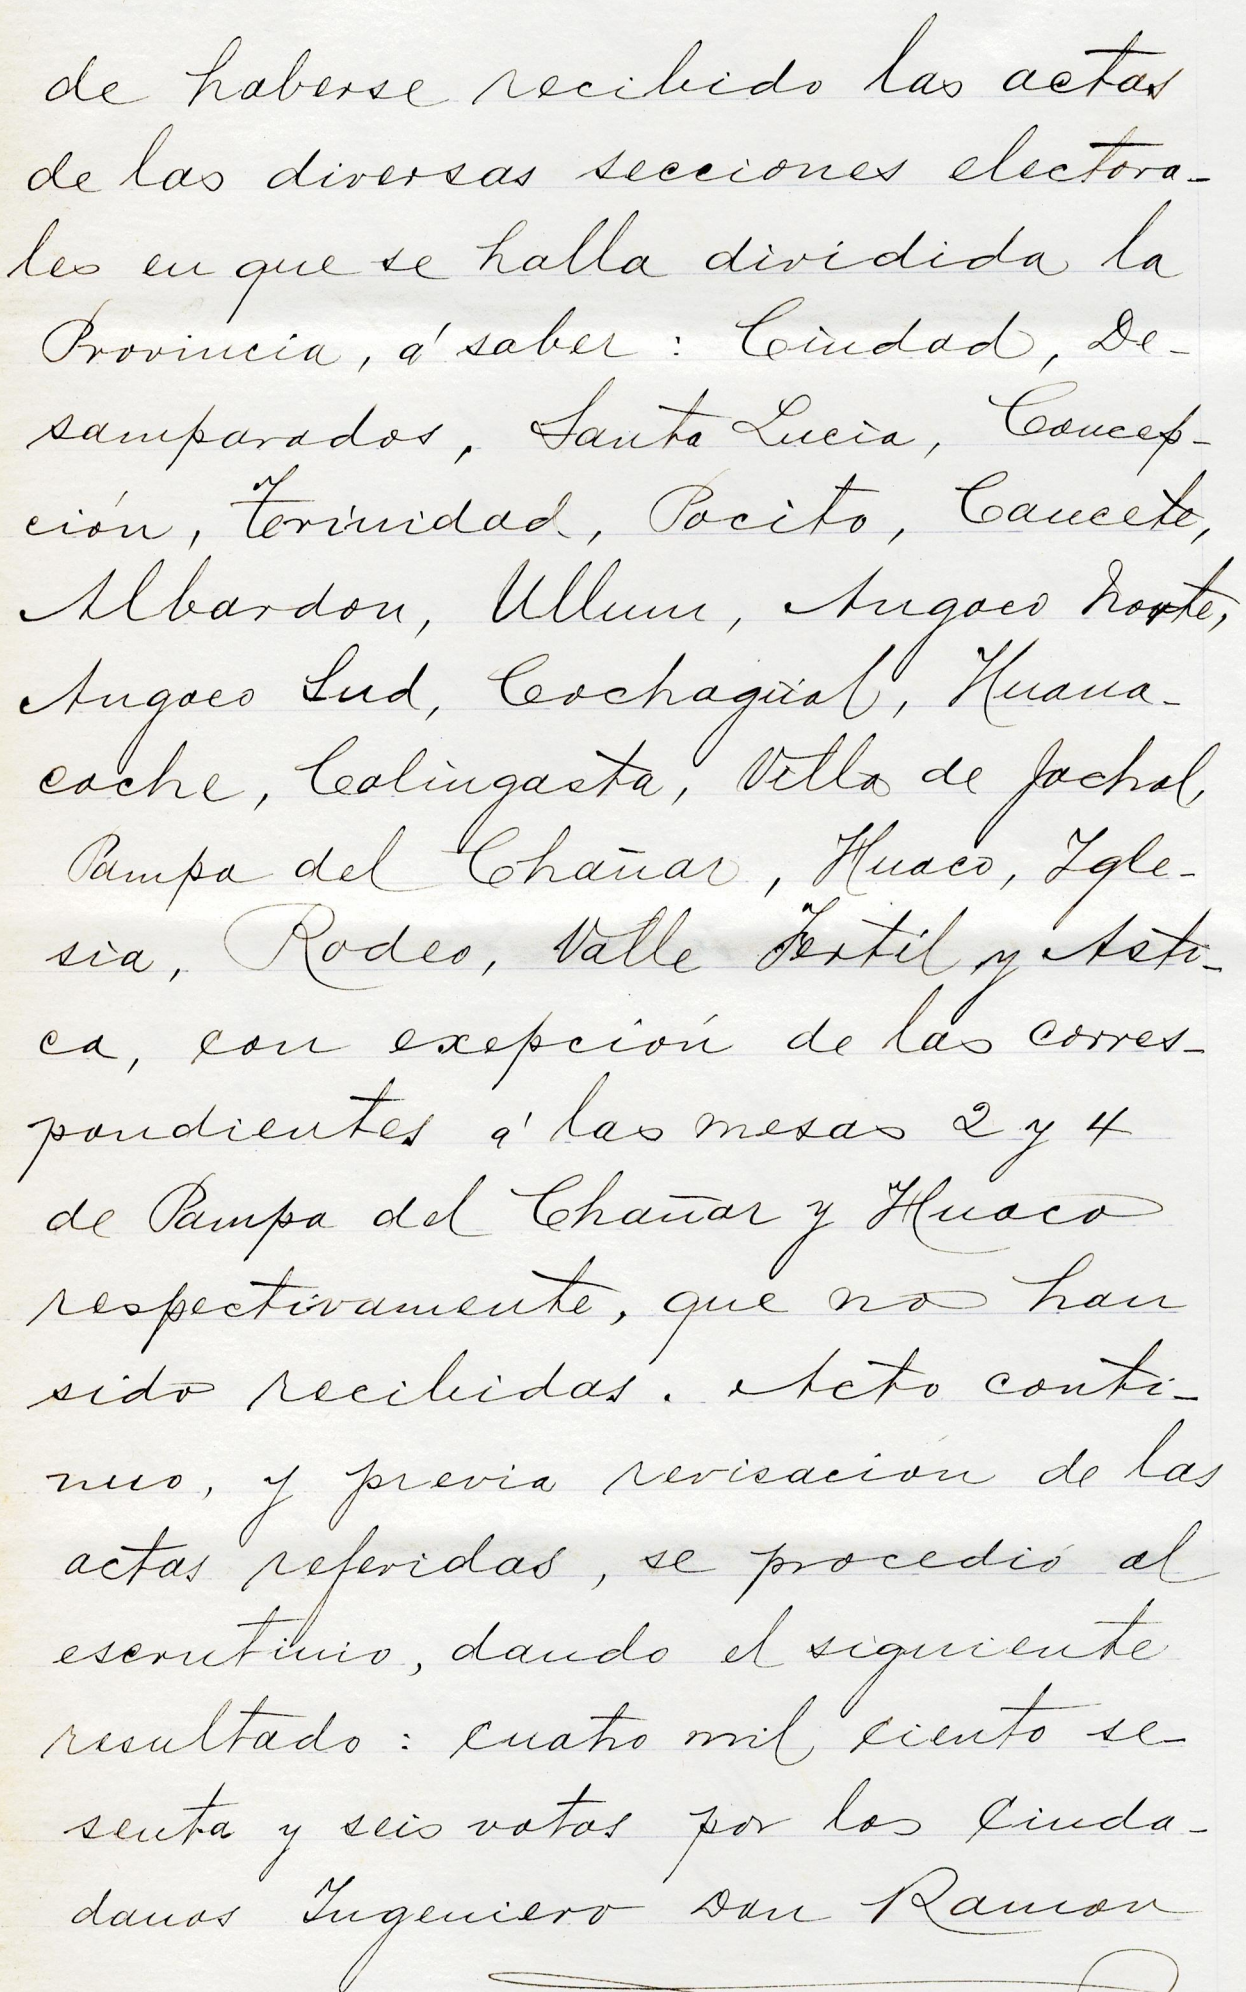 de haberse recibido las actas
de las diversas secciones electora-
les en que se halla dividida la
Provincia, á saber: Ciudad, De-
samparados, Santa Lucia, Concep-
ción, Trinidad, Pocito, Caucete,
Albardon, Ullum, Angaco Norte,
Angaco Sud, Cochagüal, Huana-
cache, Calingasta, Villa de Jachal,
Pampa del Chañar, Huaco, Igle-
sia, Rodeo, Valle Fertil y Asti-
ca, con exepción de las corres-
pondientes á las mesas 2 y 4
de Pampa del Chañar y Huaco
respectivamente, que no han
sido recibidas. Acto conti-
nuo, y previa revisación de las
actas referidas, se procedió al
escrutinio, dando el siguiente
resultado: cuatro mil ciento se-
senta y seis votos por los Ciuda-
danos Ingeniero Don Ramon